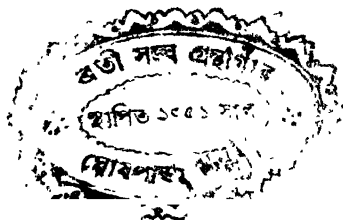 ব্রতী সঙ্ঘ গ্রন্থাগার
স্থাপিত ১৩৫১ সাল
ঘোষপাড়া